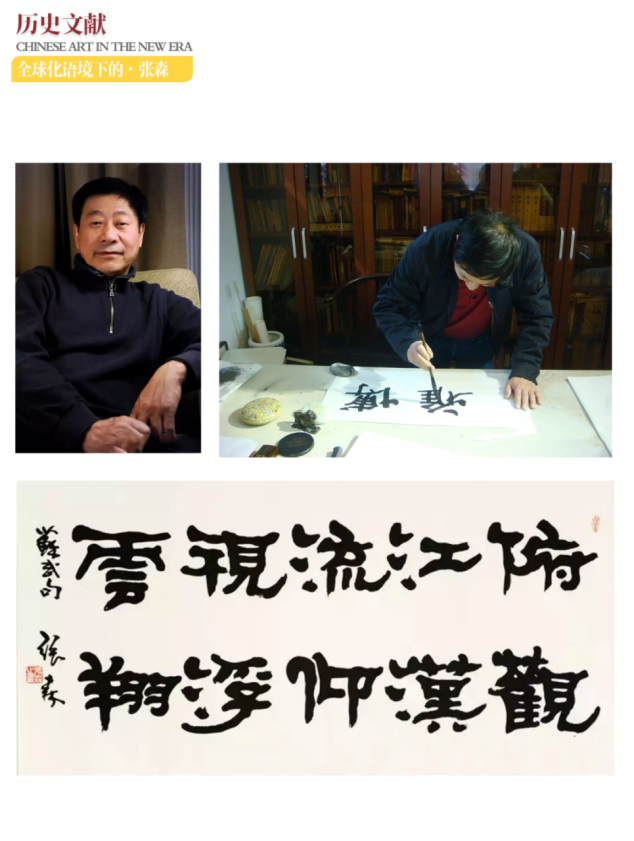 历史文献
CHINESE ART IN THE NEW ERA
全球化语境下的·张森
博雅
俯觀
江漢
流仰
視浮
雲翔
蘇武句 張森